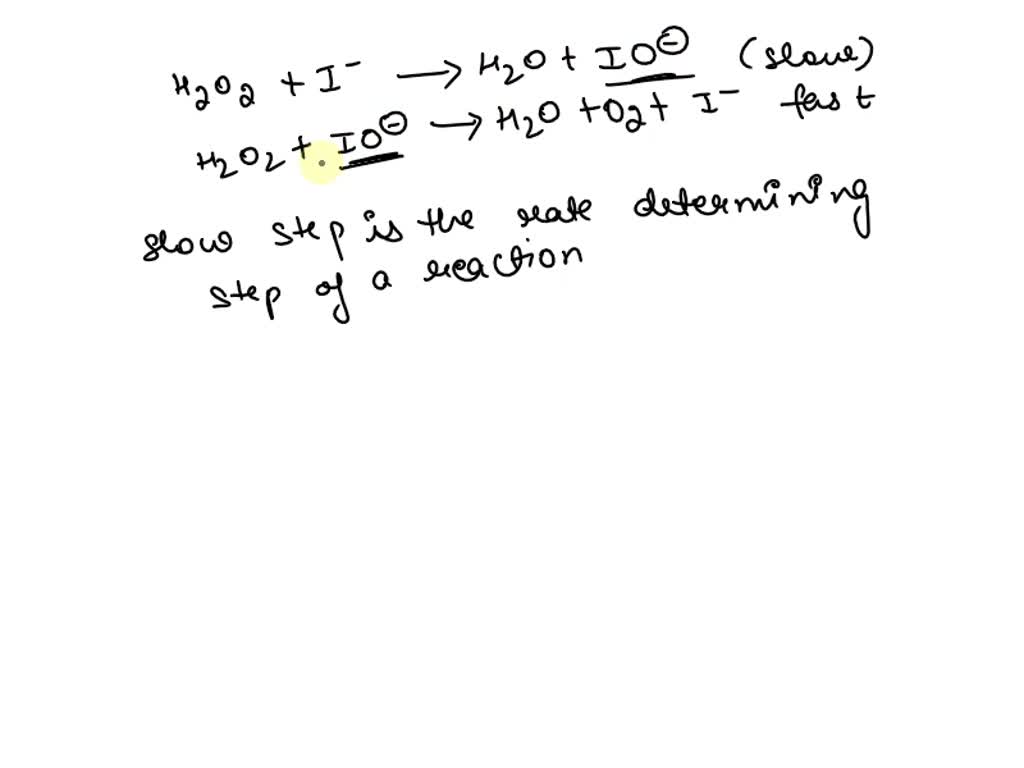 H₂O₂ + I⁻ ⟶ H₂O + IO⊖ (slow)
H₂O₂ + IO⊖ ⟶ H₂O + O₂ + I⁻ fast
slow step is the rate determining
step of a reaction